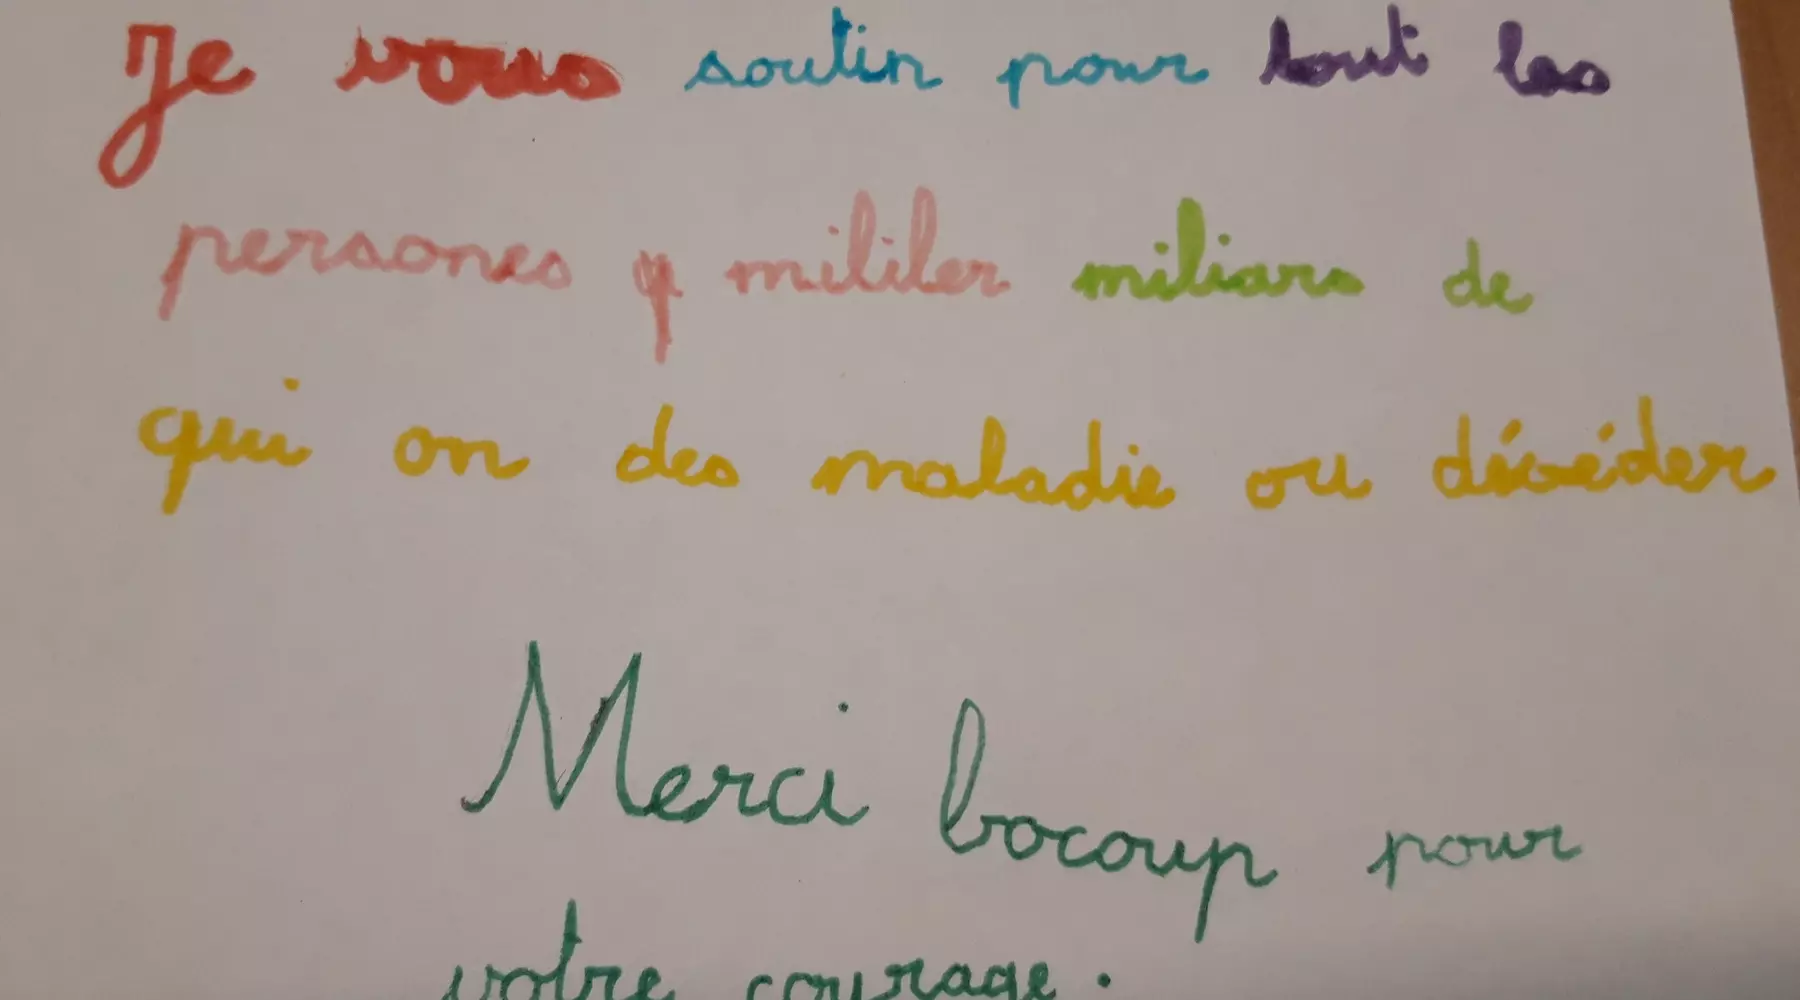 Je vous soutin pour tout les
persones y mililer miliars de
qui on des maladie ou décéder
Merci bocoup pour
votre courage.